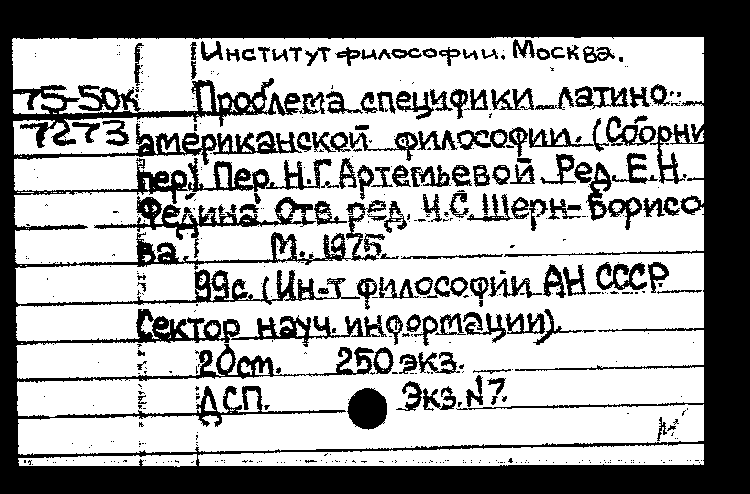 Институт философии. Москва.
75-50к Проблема специфики латино-
7273 американской философии. (Сборни
пер). Пер. Н.Г.Артемьевой. Ред. Е.Н.
Фелина. Отв. ред. И.С. Шерн-Борисо
ва. М., 1975.
99с. (Ин-т философии АН СССР.
Сектор науч. информации).
20ст. 250 экз.
ДСП. Экз.№7.